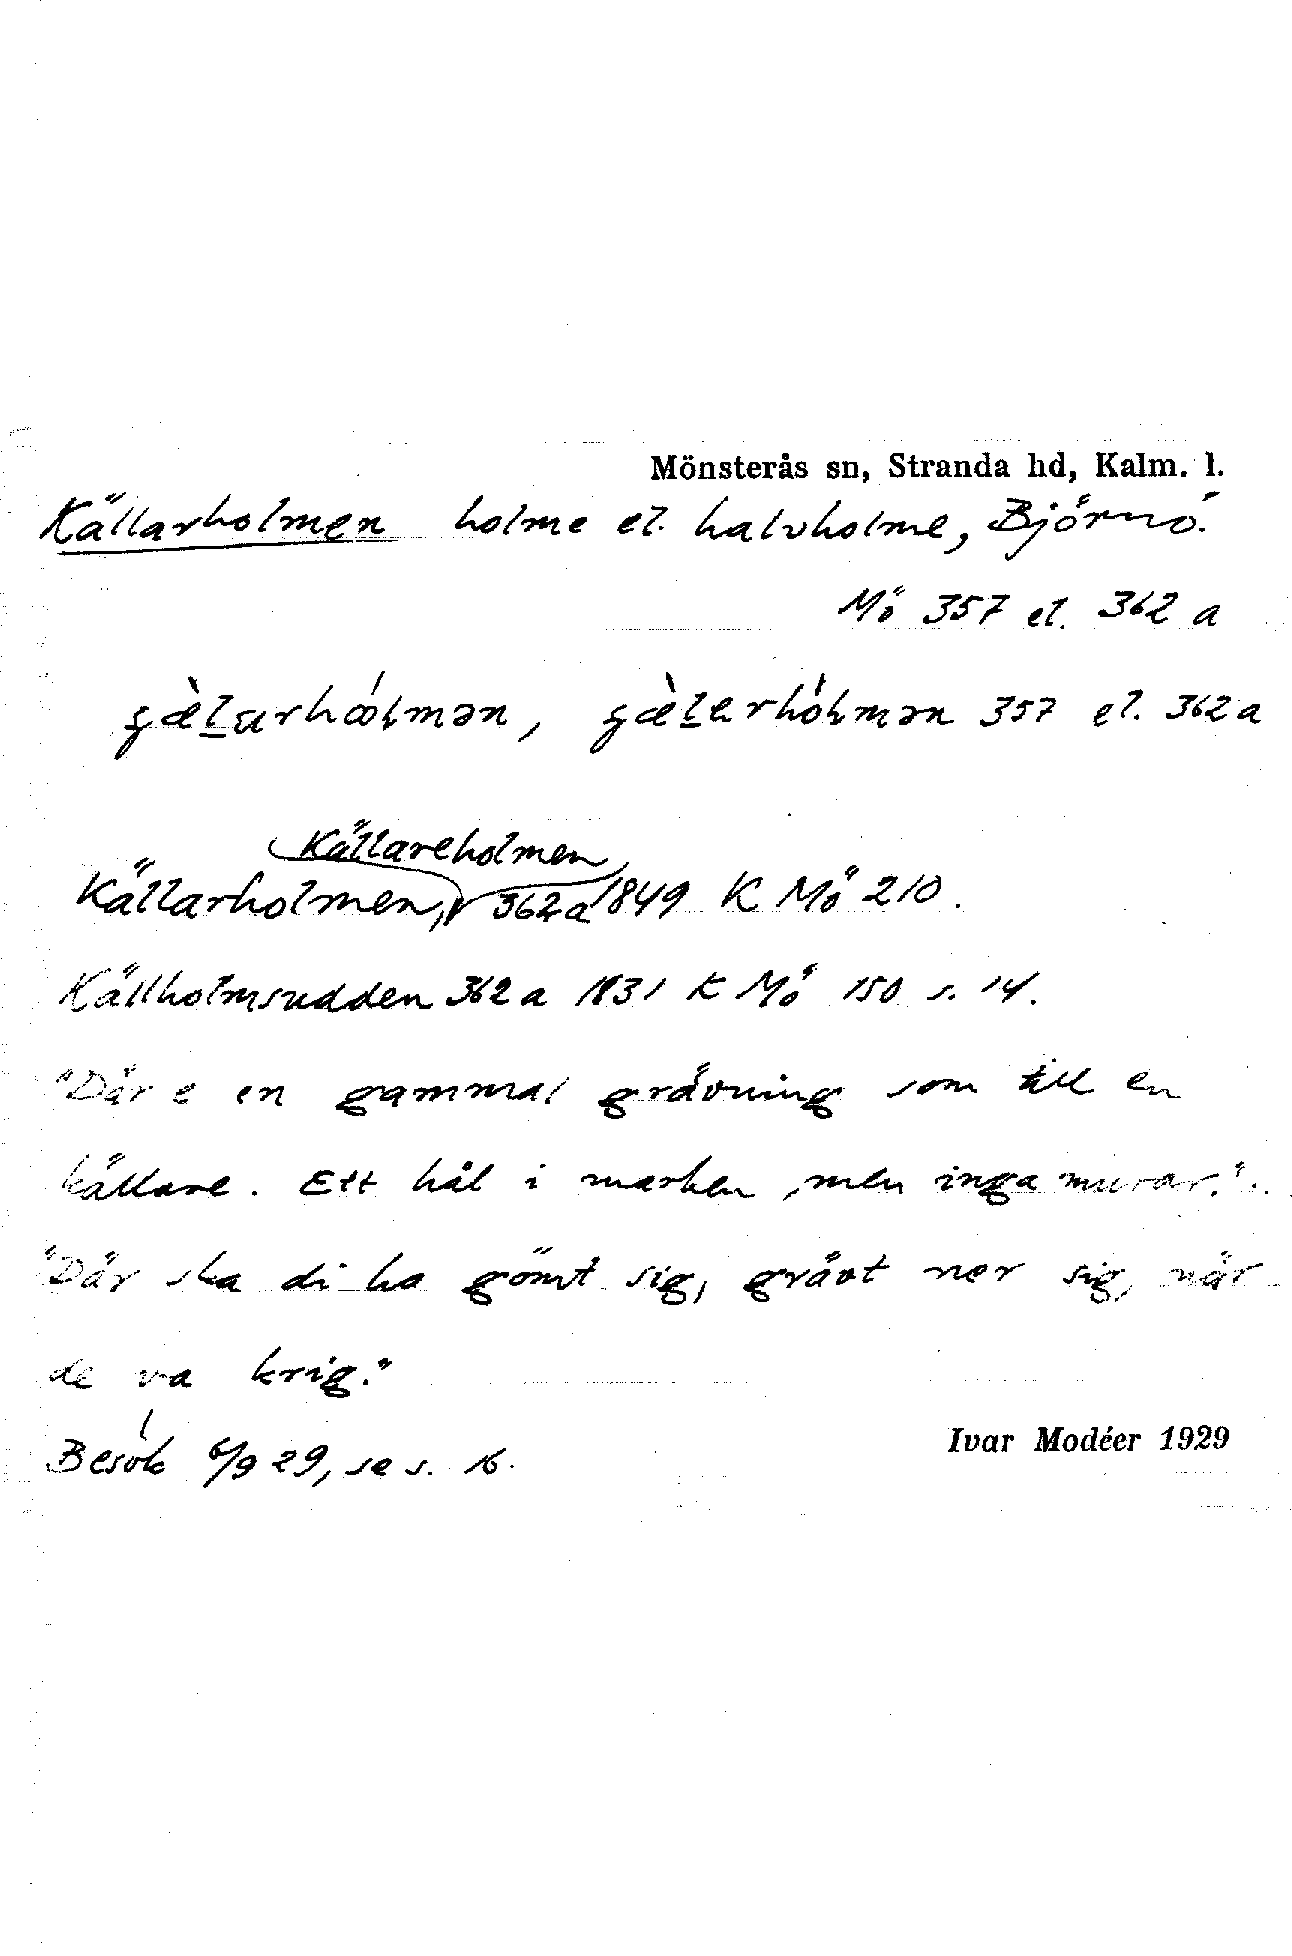 Mönsterås sn, Stranda hd, Kalm. l.
Källarholmen holme el. halvholme, Björnö.
Mö 357 el. 362 a
357 el. 362 a
Källareholmen
Källarholmen, 362 a 1849 K Mö 210.
Källholmsudden 362 a 1831 K Mö 150 s. 14.
"Där e en gammal grävning som till en
källare. Ett hål i marken, men inga murar."
"Där ska di ha gömt sig, grävt ner sig, när
de va krig."
Besök 6/9 29, se s. 16.
Ivar Modéer 1929